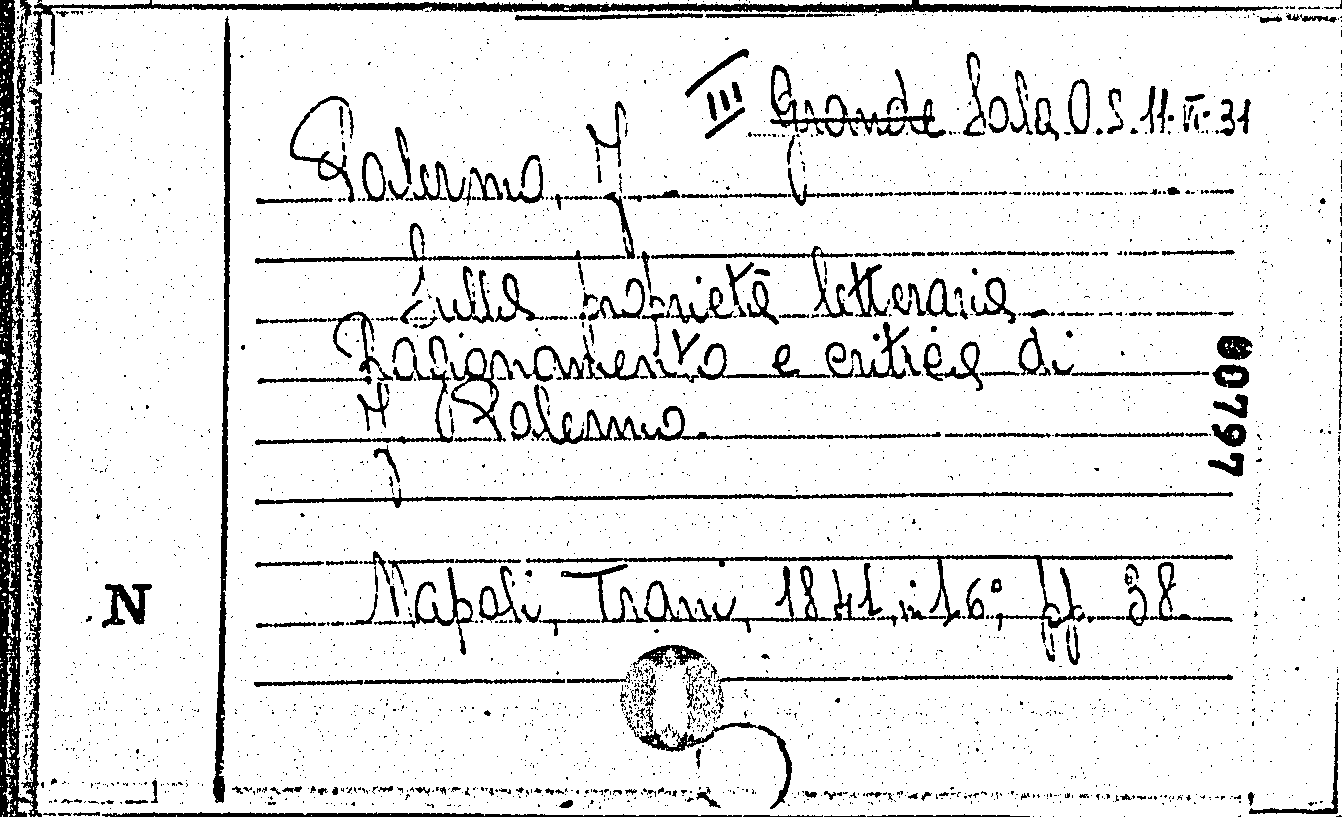 III Grande Sala O. S. 11. VI. 31
Palermo, F.
Sulla proprietà letteraria.
Ragionamento e critica di
F. Palermo.
00797
Napoli, Trani, 1841, in 16°, pp. 38
N